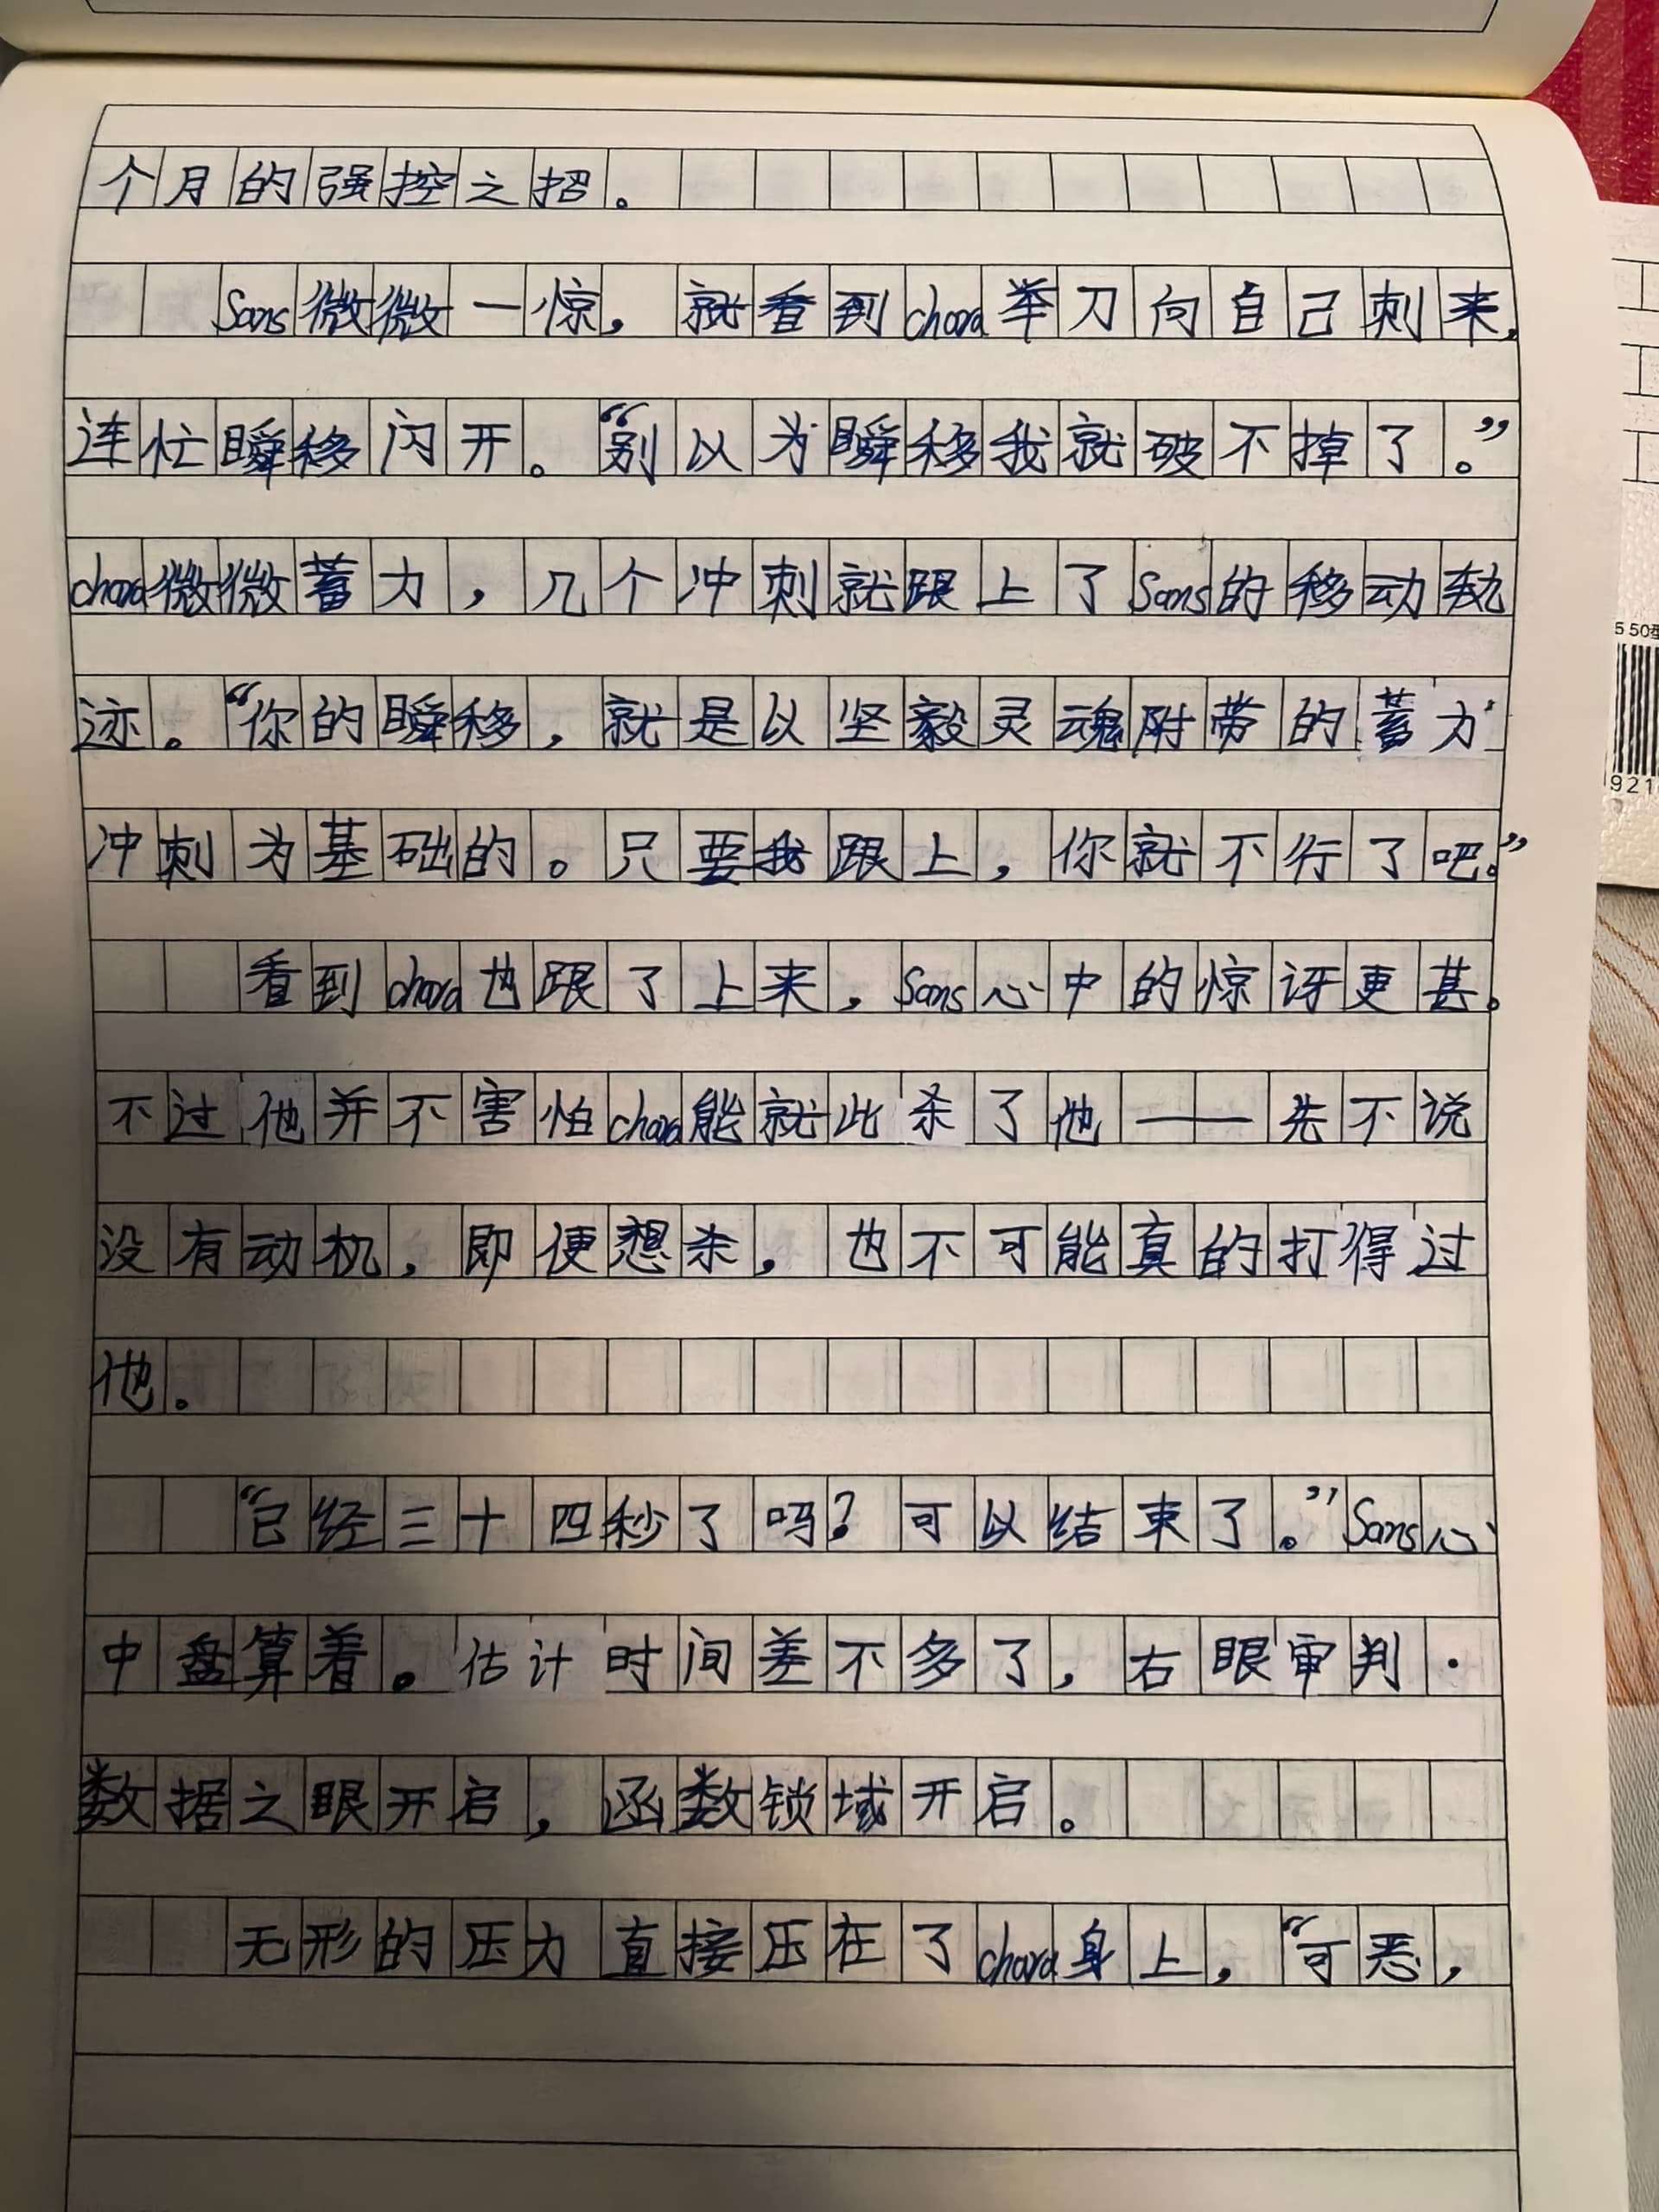 个月的强控之招。
Sans微微一惊，就看到chara举刀向自己刺来，
连忙瞬移闪开。“别以为瞬移我就破不掉了。”
chara微微蓄力，几个冲刺就跟上了Sans的移动轨
迹。“你的瞬移，就是以坚毅灵魂附带的蓄力
冲刺为基础的。只要我跟上，你就不行了吧。”
看到chara也跟了上来，Sans心中的惊讶更甚。
不过他并不害怕chara能就此杀了他——先不说
没有动机，即便想杀，也不可能真的打得过
他。
“已经三十四秒了吗？可以结束了。”Sans心
中盘算着。估计时间差不多了，右眼审判·
数据之眼开启，函数锁域开启。
无形的压力直接压在了chara身上，“可恶，
5 50
921